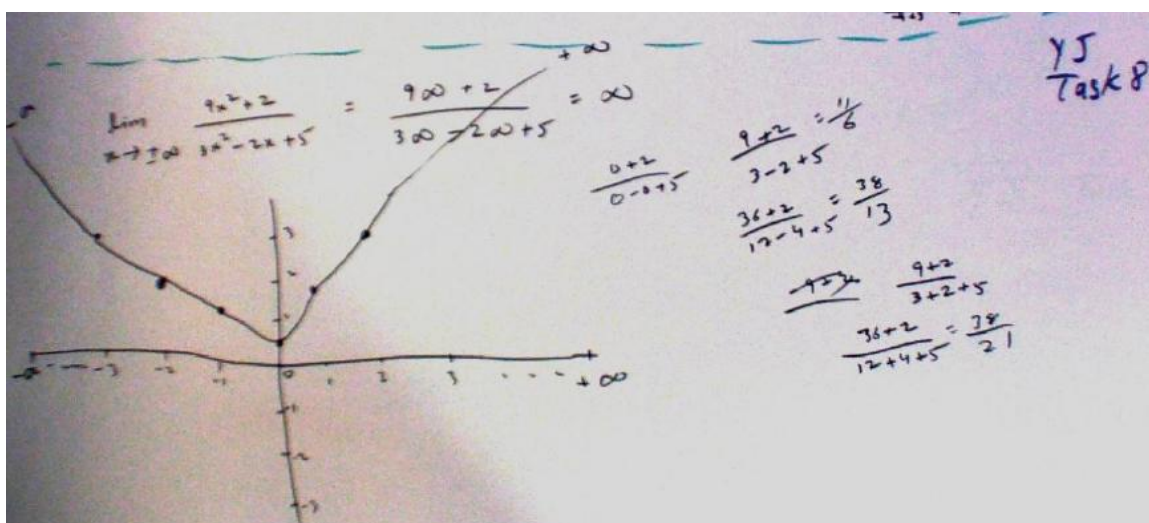 YJ
Task 8
lim x→±∞ (9x²+2)/(3x²-2x+5) = (9∞+2)/(3∞-2∞+5) = ∞
+∞
(0+2)/(0-0+5)
(9+2)/(3-2+5) = 11/6
(36+2)/(12-4+5) = 38/13
(9+2)/(3+2+5)
(36+2)/(12+4+5) = 38/21
3
2
1
-3 -2 -1 0 1 2 3 ... +∞
-1
-2
-3